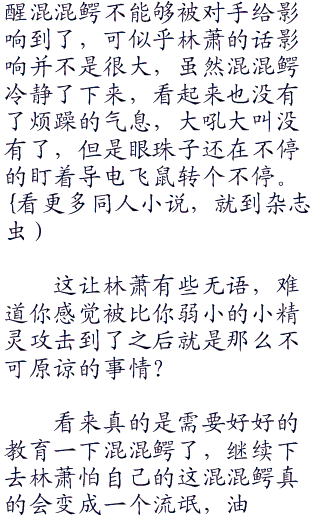 醒混混鳄不能够被对手给影
响到了，可似乎林萧的话影
响并不是很大，虽然混混鳄
冷静了下来，看起来也没有
了烦躁的气息，大吼大叫没
有了，但是眼珠子还在不停
的盯着导电飞鼠转个不停。
{看更多同人小说，就到杂志
虫）
这让林萧有些无语，难
道你感觉被比你弱小的小精
灵攻击到了之后就是那么不
可原谅的事情？
看来真的是需要好好的
教育一下混混鳄了，继续下
去林萧怕自己的这混混鳄真
的会变成一个流氓，油